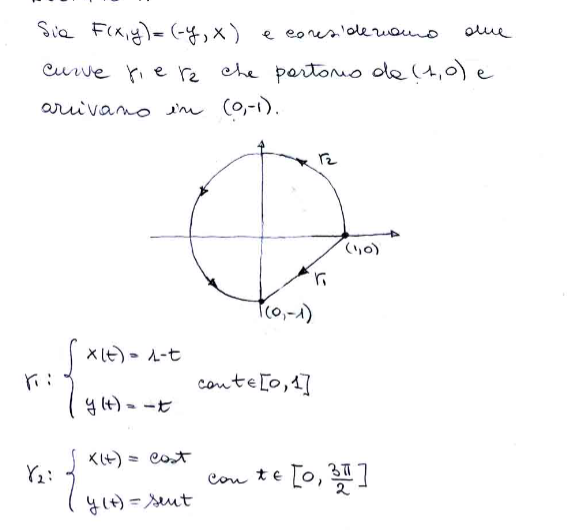 Sia F(x,y)=(-y,x) e consideriamo due
curve γ1 e γ2 che partono da (1,0) e
arrivano in (0,-1).
γ2
(1,0)
γ1
(0,-1)
γ1: { x(t) = 1-t
y(t) = -t
con t∈[0,1]
γ2: { x(t) = cost
y(t) = sent
con t ∈ [0, 3π/2]